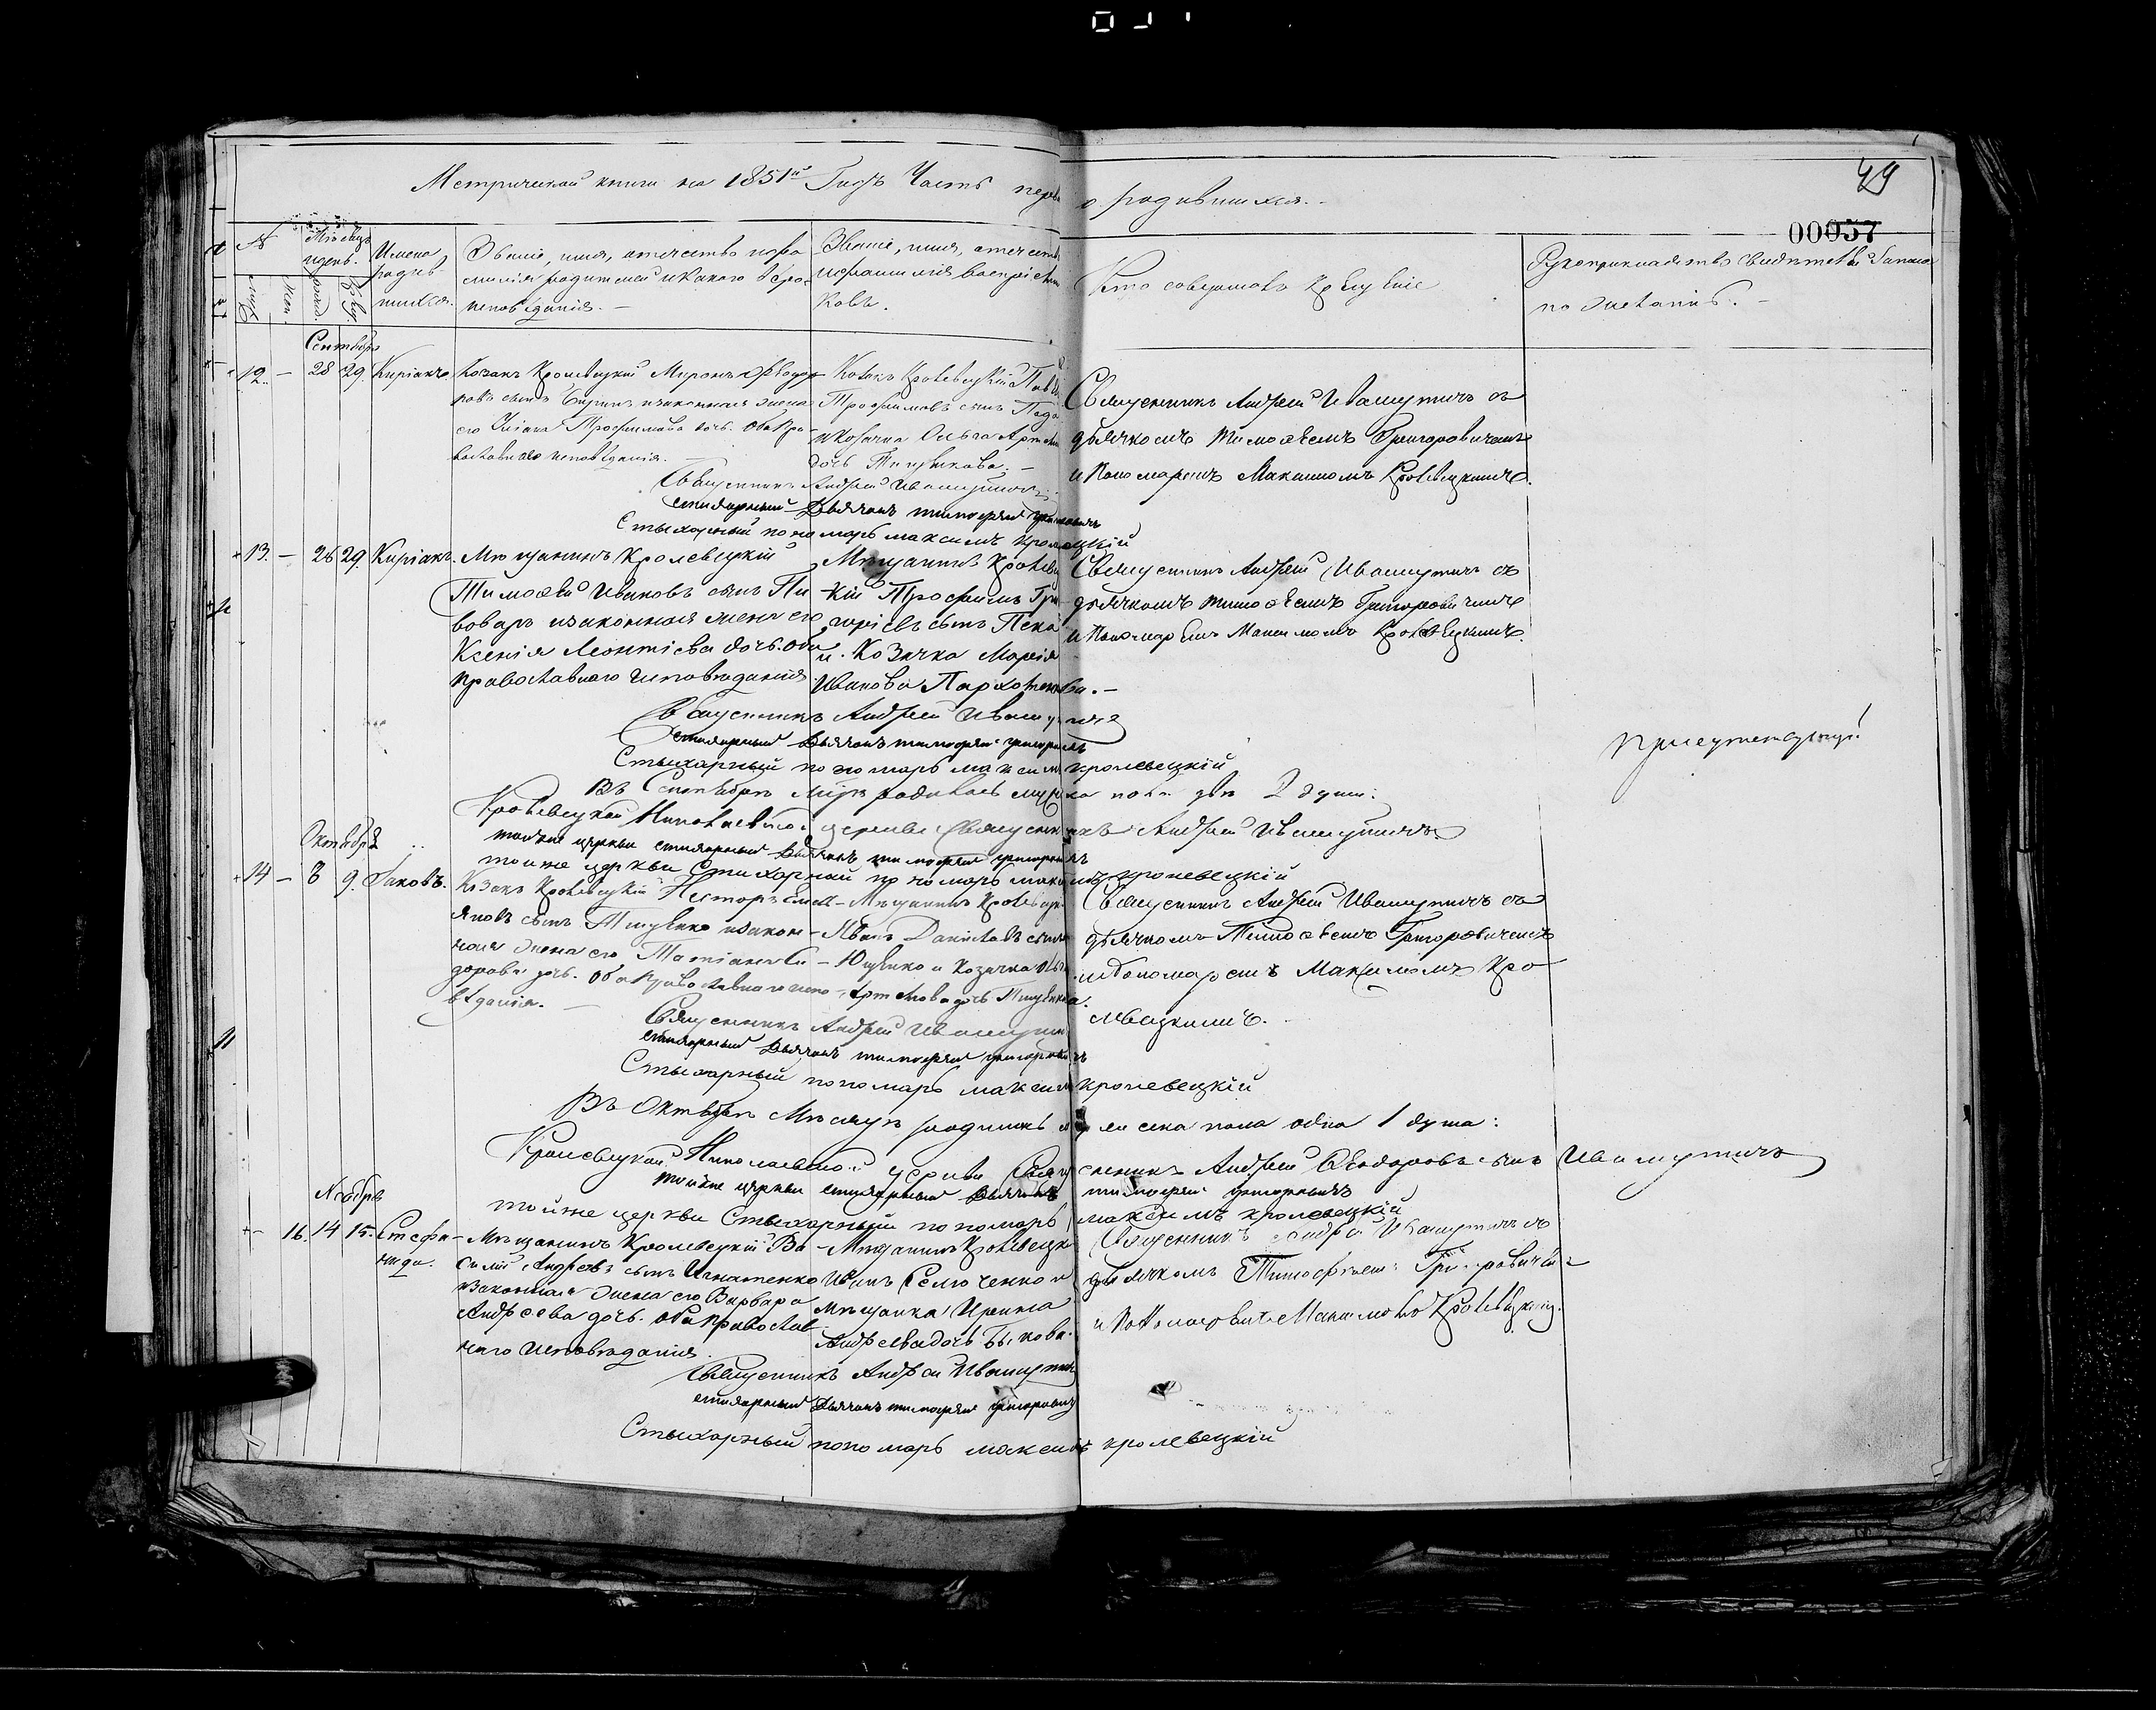 49
00057
Метрической книги на 1851й Годъ Часть перва о родившихся.
№
Мѣсяцъ и день.
Имена родив-
шихся.
Званіе, имя, отечество и фа-
милія родителей и какого вѣро-
исповѣданія.
Званіе, имя, отечество
и фамилія воспріемни
ковъ.
Кто совершалъ крещеніе
Рукоприкладство свидѣтелей записи
по желанію.
Сентябрь
12. — 28 29. Киріакъ.
Козакъ Кролевецкій Миронъ Феодо-
ровъ сынъ и законная жена
его Трофимова дочь. Оба Пра-
вославнаго исповѣданія.
Козакъ Кролевецкій
Трофимовъ сынъ
и козачка Ольга
дочь
Священникъ Андрей Ивашутичъ съ
дьячкомъ Тимофеемъ Григоровичемъ
и Пономаремъ Максимомъ Кролевецкимъ.
Священникъ Андрей Ивашутичъ
стихарный Дьячокъ тимофей григоровичъ
Стыхарный пономарь максимъ кролевецкій
13. — 28 29. Киріакъ.
Мѣщанинъ Кролевецкій
Тимофей Ивановъ сынъ Пи-
воваръ и законная жена его
Ксенія Леонтіева дочь. Оба
православнаго исповѣданія
Мѣщанинъ Кролевец-
кій Трофимъ Гри-
горіевъ сынъ
и Козачка Марія
Иванова Пархоменкова. —
Священникъ Андрей Ивашутичъ съ
дьячкомъ тимофеемъ Григоровичемъ
и Пономаремъ Максимомъ Кролевецкимъ.
Священникъ Андрей Ивашутичъ
стихарный Дьячокъ тимофей григоровичъ
Стыхарный пономарь максимъ кролевецкій
Въ Сентябрѣ мѣсяцѣ родилось мужеска пола двѣ 2 души:
Кролевецкой Николаевской церкви Священникъ Андрей Ивашутичъ
тойже церкви стихарный Дьячокъ тимофей григоровичъ
тойже церкви Стихарный пономарь максимъ кролевецкій
Октябрь
14 — 8 9. Іаковъ.
Козакъ Кролевецкій Несторъ Емел-
яновъ сынъ Тищенко и закон-
ная жена его Татіана Си-
дорова дочь. Оба Православнаго испо-
вѣданія.
Мѣщанинъ Кролевецкій
Иванъ Даніиловъ сынъ
Ющенко и Козачка Ольга
Артемова дочь Тищенкова.
Священникъ Андрей Ивашутичъ съ
дьячкомъ Тимофеемъ Григоровичемъ
и Пономаремъ Максимомъ Кро-
левецкимъ.
Священникъ Андрей Ивашутичъ
стихарный Дьячокъ тимофей григоровичъ
Стыхарный пономарь максимъ кролевецкій
Въ Октябрѣ Мѣсяцѣ родилась мужеска пола одна 1 душа:
Кролевецкой Николаевской церкви Священникъ Андрей Феодоровъ сынъ Ивашутичъ
тойже церкви стихарный Дьячокъ тимофей григоровичъ
тойже церкви Стыхарный пономарь максимъ кролевецкій
Ноябрь
— 16. 14 15. Стефа-
нида.
Мѣщанинъ Кролевецкій Ва-
силій Андреевъ сынъ Игнатенко
и законная жена его Варвара
Андреева дочь. Оба Православ-
наго исповѣданія.
Мѣщанинъ Кролевецкій
Иванъ Селюченко и
Мѣщанка Ирина
Андреева дочь Быкова.
Священникъ Андрей Ивашутичъ съ
дьячкомъ Тимофеемъ Григоровичемъ
и Пономаремъ Максимомъ Кролевецкимъ.
Священникъ Андрей Ивашутичъ
стихарный Дьячокъ тимофей григоровичъ
Стыхарный пономарь максимъ кролевецкій